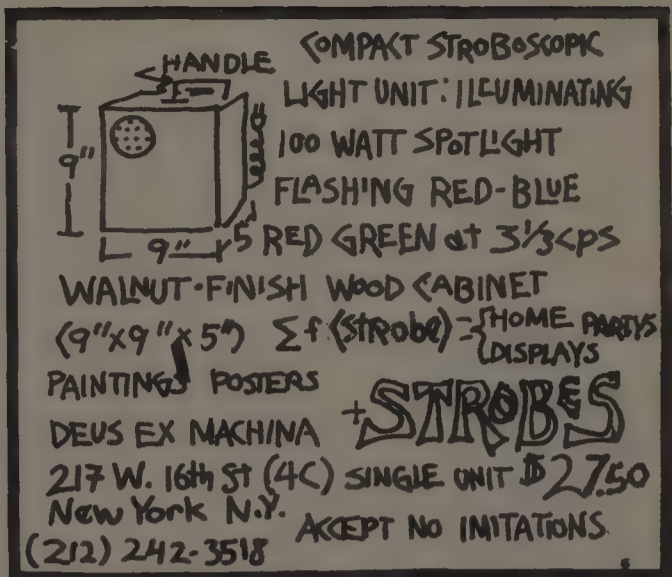 HANDLE
COMPACT STROBOSCOPIC
LIGHT UNIT: ILLUMINATING
9"
100 WATT SPOTLIGHT
FLASHING RED-BLUE
9" 5"
RED GREEN at 3⅓cps
WALNUT-FINISH WOOD CABINET
(9"x9"x5") Σf (StRobe) = {HOME PARTYS
DISPLAYS
PAINTINGS POSTERS
+STROBES
DEUS EX MACHINA
217 W. 16th St (4C) SINGLE UNIT $27.50
New York N.Y.
ACCEPT NO IMITATIONS
(212) 242-3518